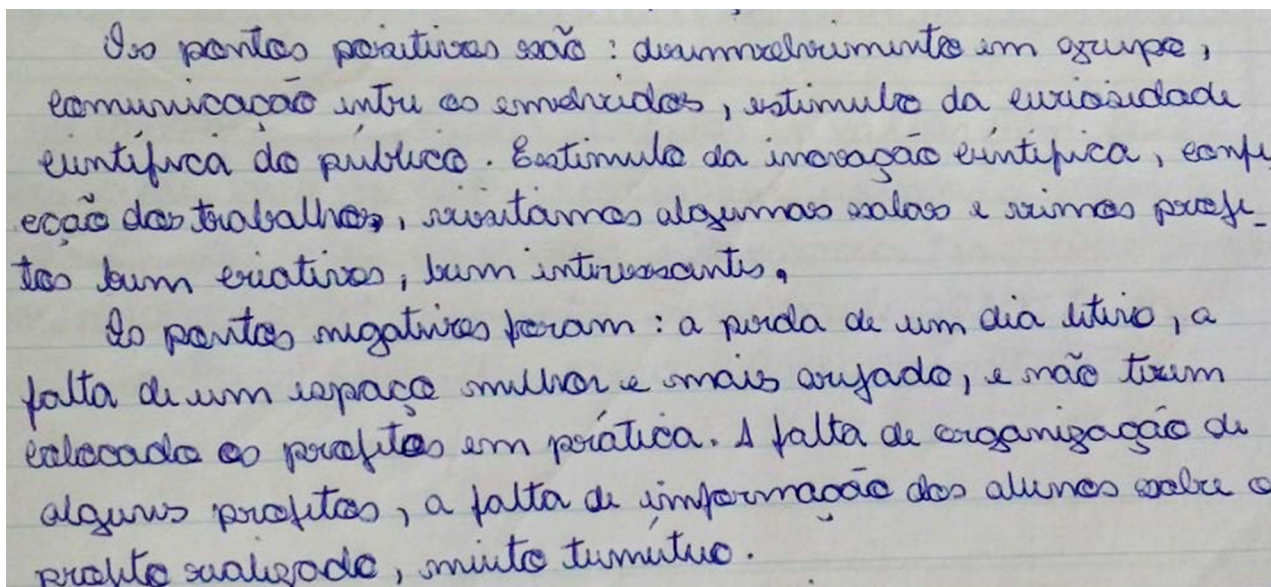 Os pontos positivos são: desenvolvimento em grupo,
comunicação entre os envolvidos, estimulo da curiosidade
cientifica do público. Estimulo da inovação cientifica, confe
cção dos trabalhos, visitamos algumas salas e vimos proje_
tos bem criativos, bem interessantes.
Os pontos negativos foram: a perda de um dia letivo, a
falta de um espaço melhor e mais arejado, e não terem
colocado os projetos em prática. A falta de organização de
alguns projetos, a falta de informação dos alunos sobre o
projeto realizado, muito tumútuo.